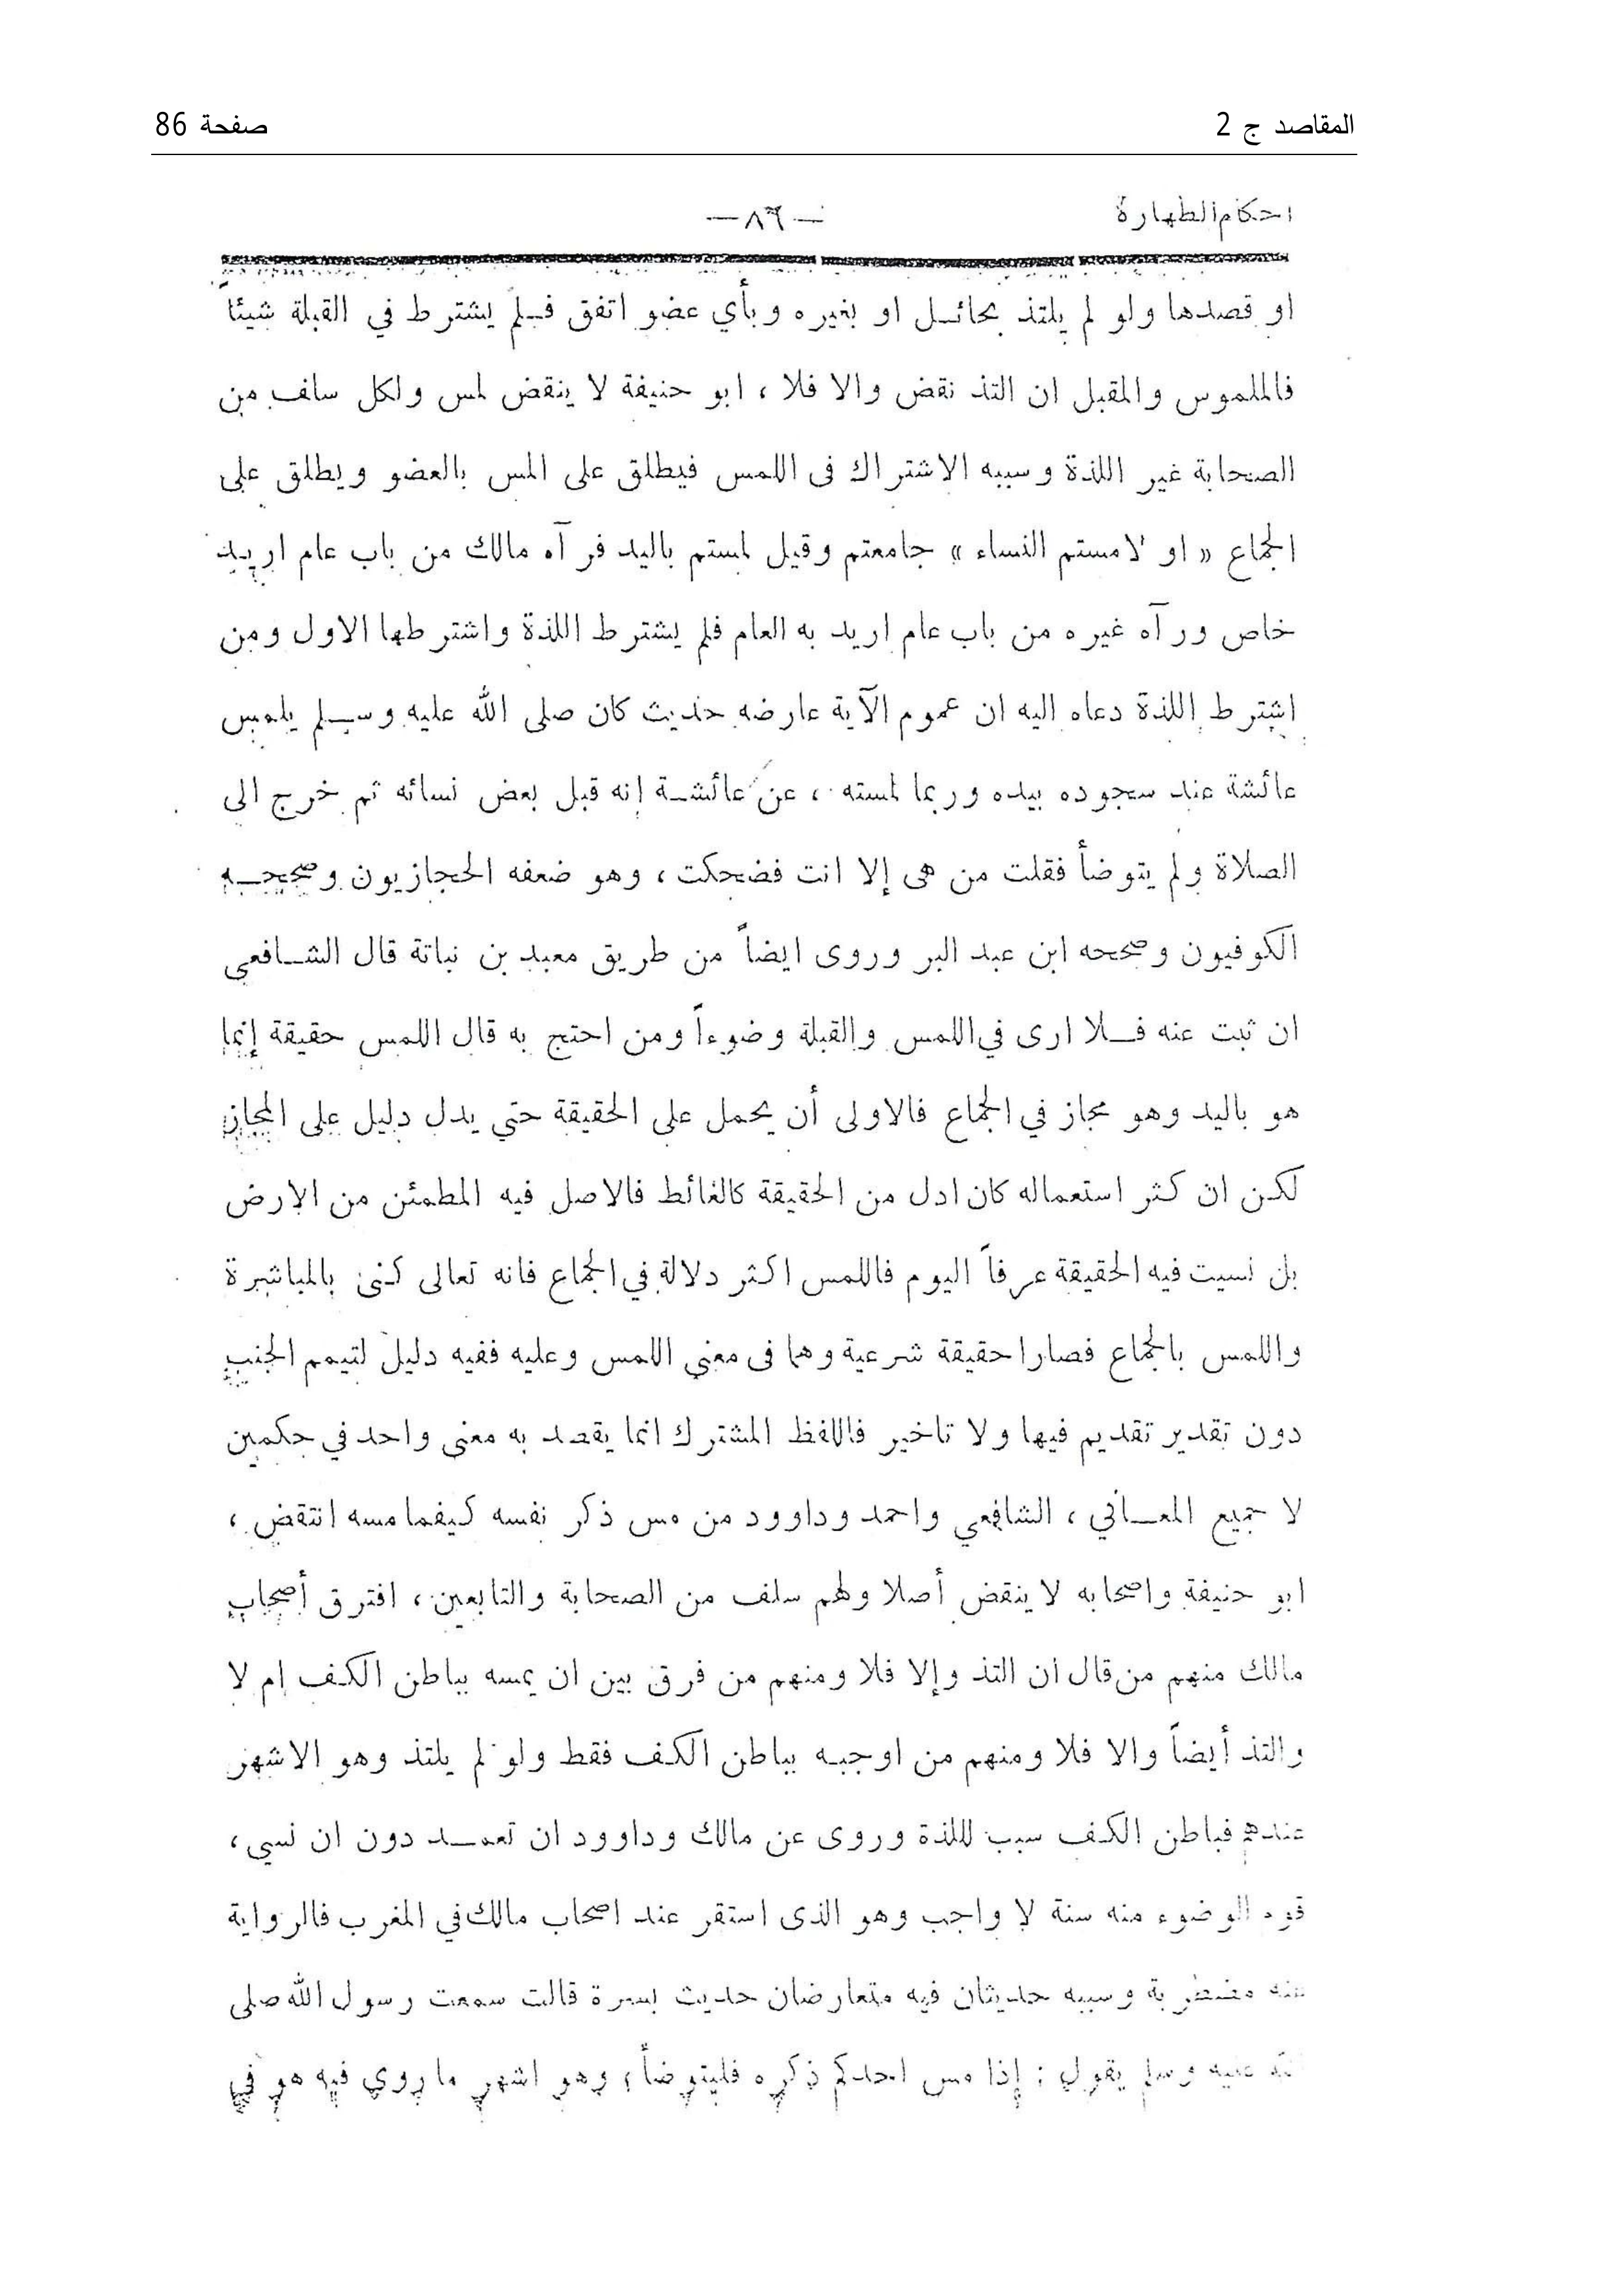 المقاصد ج 2
صفحة 86
احكام الطهارة
— ٨٦ —
او قصدها ولو لم يلتذ بحائل او بغيره وبأي عضو اتفق فلم يشترط في القبلة شيئاً
فالملموس والمقبل ان التذ نقض والا فلا ، ابو حنيفة لا ينقض لمس ولكل سلف من
الصحابة غير اللذة وسببه الاشتراك فى اللمس فيطلق على المس بالعضو ويطلق على
الجماع « او لامستم النساء » جامعتم وقيل لمستم باليد فرآه مالك من باب عام اريد
خاص ورآه غيره من باب عام اريد به العام فلم يشترط اللذة واشترطها الاول ومن
اشترط اللذة دعاه اليه ان عموم الآية عارضه حديث كان صلى الله عليه وسلم يلمس
عائشة عند سجوده بيده وربما لمسته ، عن عائشة إنه قبل بعض نسائه ثم خرج الى
الصلاة ولم يتوضأ فقلت من هى إلا انت فضحكت ، وهو ضعفه الحجازيون وصححه
الكوفيون وصححه ابن عبد البر وروى ايضاً من طريق معبد بن نباتة قال الشافعي
ان ثبت عنه فلا ارى في اللمس والقبلة وضوءاً ومن احتج به قال اللمس حقيقة إنما
هو باليد وهو مجاز في الجماع فالاولى أن يحمل على الحقيقة حتي يدل دليل على المجاز
لكن ان كثر استعماله كان ادل من الحقيقة كالغائط فالاصل فيه المطمئن من الارض
بل نسيت فيه الحقيقة عرفاً اليوم فاللمس اكثر دلالة في الجماع فانه تعالى كنى بالمباشرة
واللمس بالجماع فصارا حقيقة شرعية وهما فى معني اللمس وعليه ففيه دليل لتيمم الجنب
دون تقدير تقديم فيها ولا تاخير فاللفظ المشترك انما يقصد به معنى واحد في حكمين
لا جميع المعاني ، الشافعي واحمد وداوود من مس ذكر نفسه كيفما مسه انتقض ،
ابو حنيفة واصحابه لا ينقض أصلا ولهم سلف من الصحابة والتابعين ، افترق أصحاب
مالك منهم من قال ان التذ وإلا فلا ومنهم من فرق بين ان يمسه بباطن الكف ام لا
والتذ أيضاً والا فلا ومنهم من اوجبه بباطن الكف فقط ولو لم يلتذ وهو الاشهر
عندهم فباطن الكف سبب للذة وروى عن مالك وداوود ان تعمد دون ان نسي ،
قوم الوضوء منه سنة لا واجب وهو الذى استقر عند اصحاب مالك في المغرب فالرواية
عنه مضطربة وسببه حديثان فيه متعارضان حديث بسرة قالت سمعت رسول الله صلى
الله عليه وسلم يقول : إذا مس احدكم ذكره فليتوضأ ، وهو اشهر ما روي فيه هو في